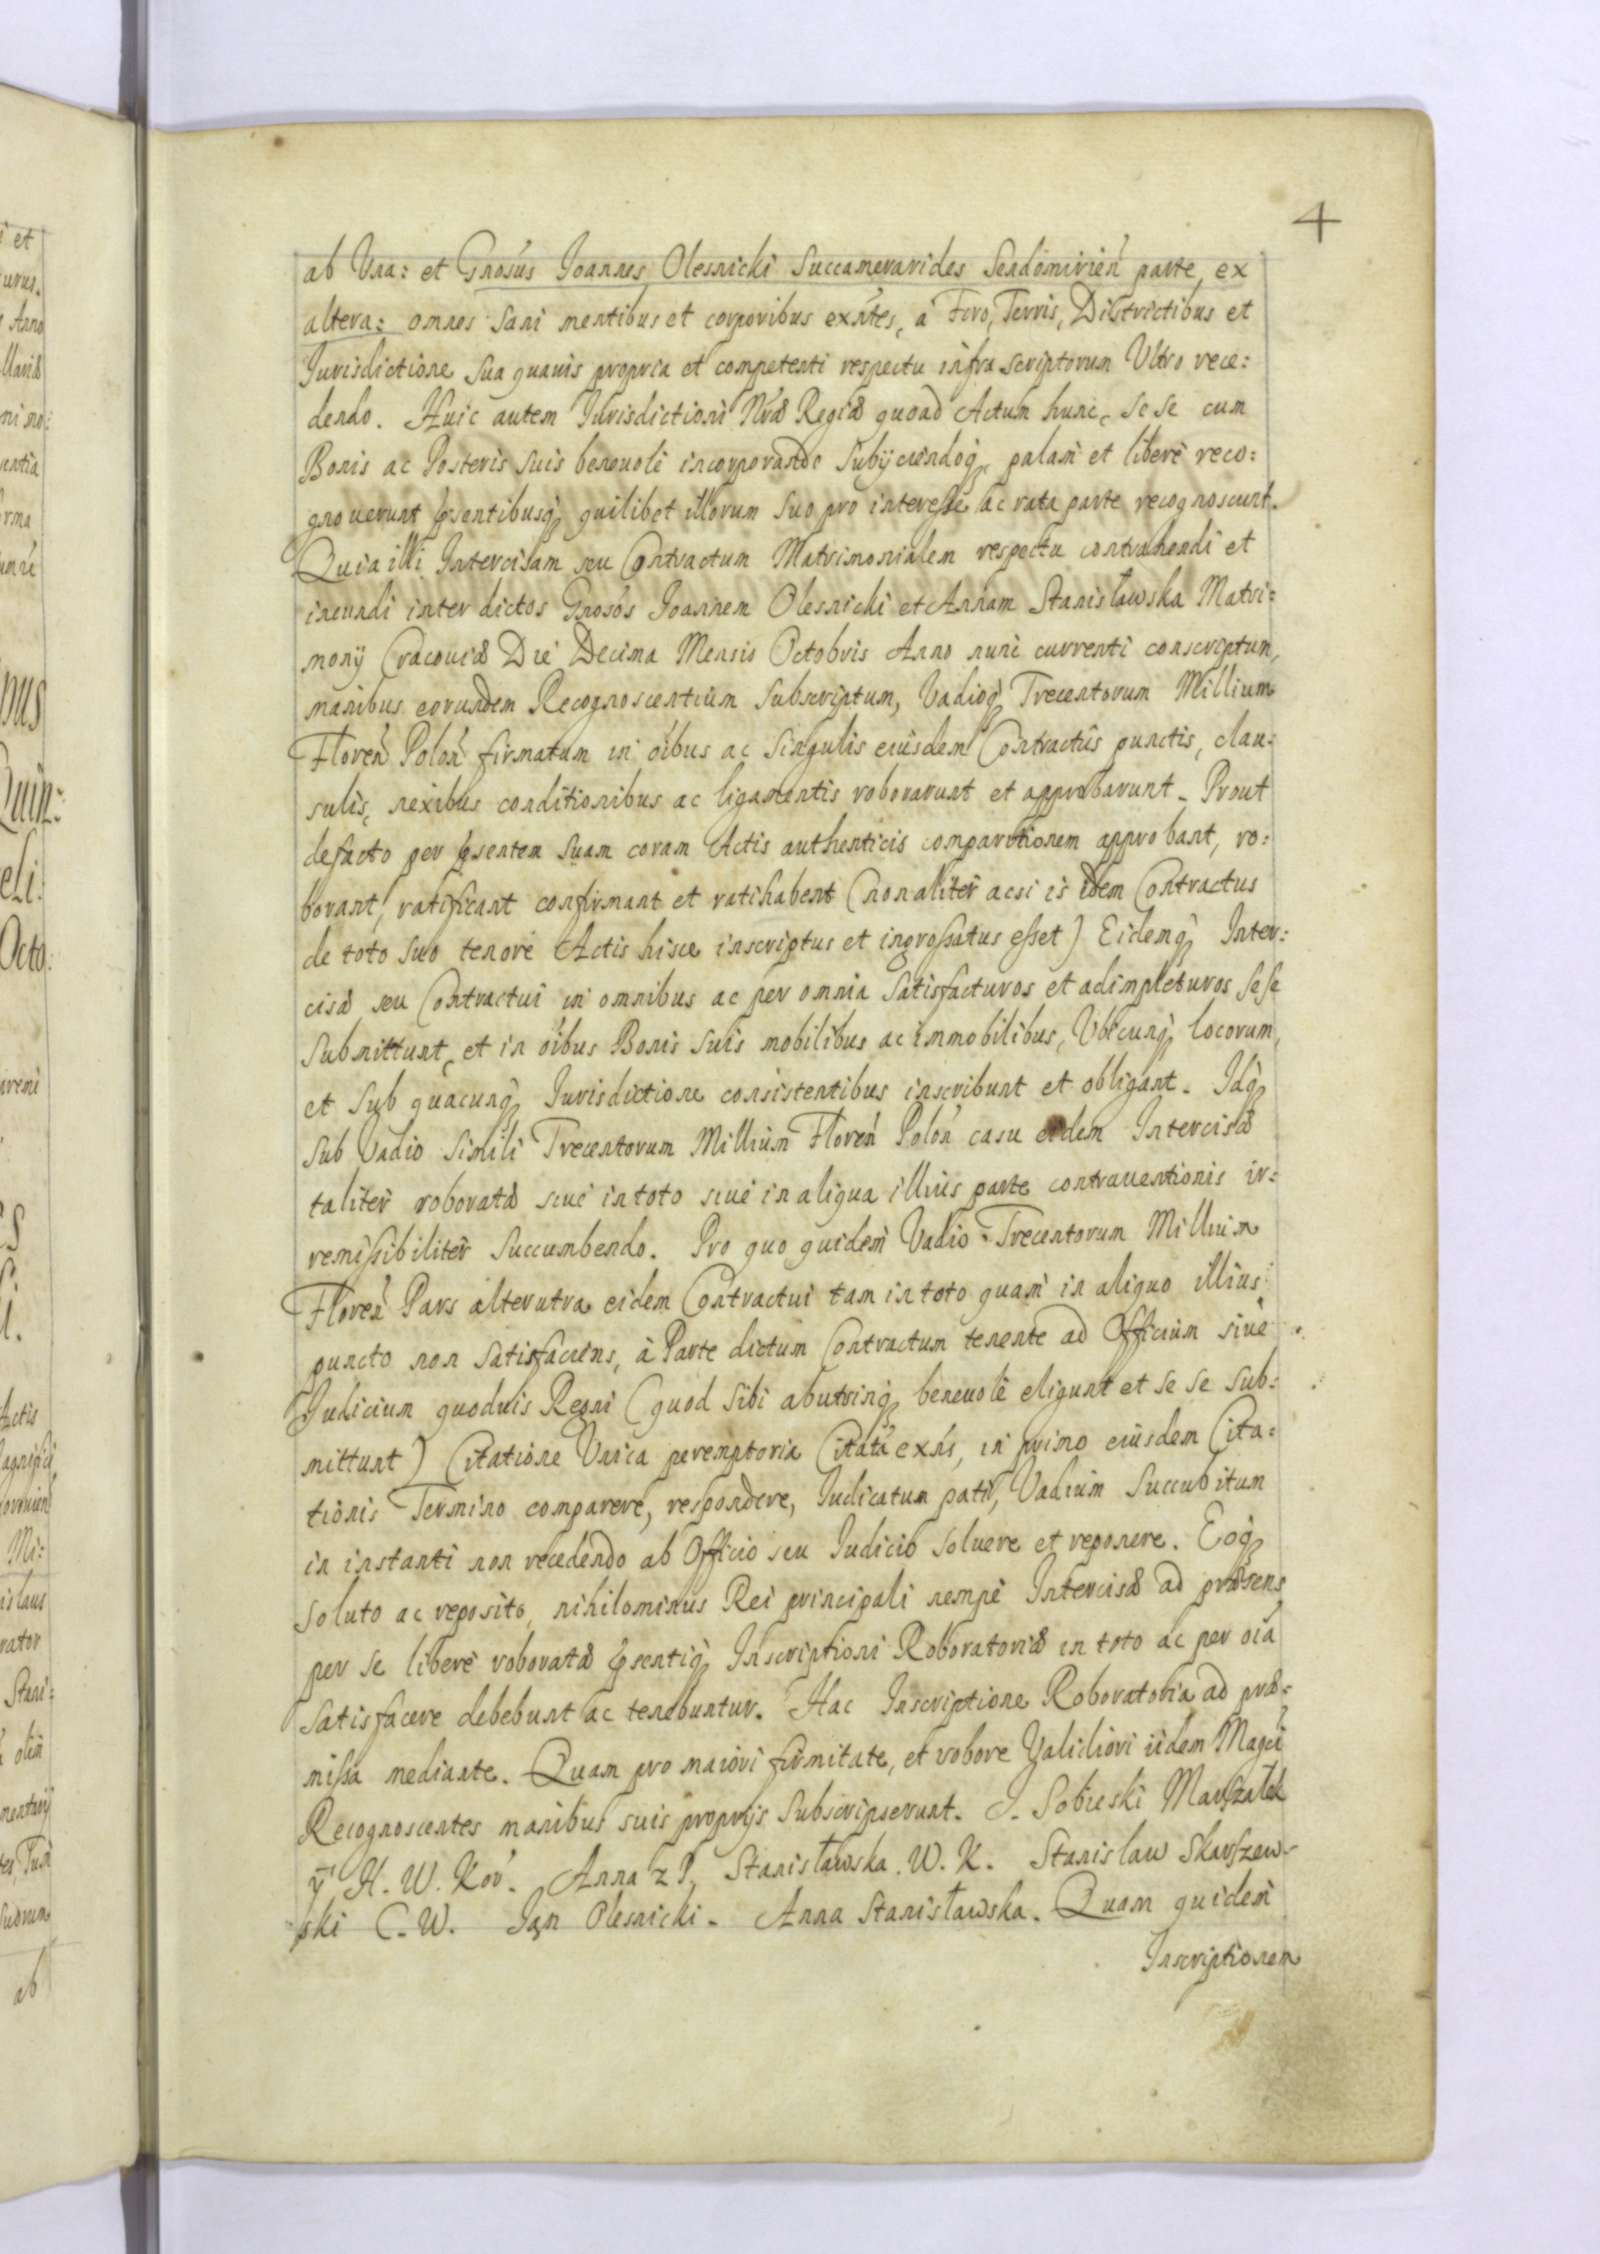 4
ab Una: et Gnosus Joannes Olesnicki Succamerarides Sendomirien parte, ex
altera: omnes sani mentibus et corporibus exñtes, a Foro, Terris, Districtibus et
Jurisdictione sua quavis propria et competenti respectu infra scriptorum Ultro rece:
dendo. Huic autem Jurisdictioni Nræ Regiæ quoad Actum hunc, se se cum
Bonis ac Posteris suis benevolè incorporando subijciendoq, palam et liberè reco:
gnoverunt psentibusq quilibet illorum suo pro interesse ac rata parte recognoscunt.
Quia illi Intercisam seu Contractum Matrimonialem respectu contrahendi et
ineundi inter dictos Gnosos Joannem Olesnicki et Annam Stanisławska Matri:
monij Cracoviæ Die Decima Mensis Octobris Anno nunc currenti conscriptum,
manibus eorundem Recognoscentium subscriptum, Vadioq Trecentorum Millium
Floren Polon firmatum in oibus ac singulis eiusdem Contractus punctis, clau:
sulis, nexibus conditionibus ac ligamentis roborarunt et approbarunt. Prout
defacto per psentem suam coram Actis authenticis comparitionem approbant, ro:
borant, ratificant confirmant et ratihabent (non aliter acsi is idem Contractus
de toto suo tenore Actis hisce inscriptus et ingrossatus esset) Eidemq Inter:
cisæ seu Contractui in omnibus ac per omnia satisfacturos et adimpleturos sese
submittunt, et in oibus Bonis suis mobilibus ac immobilibus, Ubicunq locorum,
et sub quacunq Jurisdictione consistentibus inscribunt et obligant. Idq
sub Vadio simili Trecentorum Millium Floren Polon casu eidem Intercisæ
taliter roboratæ sive in toto sive in aliqua illius parte contraventionis ir:
remissibiliter succumbendo. Pro quo quidem Vadio Trecentorum Millium
Floren Pars alterutra eidem Contractui tam in toto quam in aliquo illius
puncto non satisfaciens, à Parte dictum Contractum tenente ad Officium sivè
Judicium quodvis Regni (quod sibi abutrinq benevolè eligunt et se se sub:
mittunt) Citatione Unica peremptoria Citata exñs, in primo eiusdem Cita:
tionis Termino comparere, respondere, Judicatum pati, Vadium succubitum
in instanti non recedendo ab Officio seu Judicio solvere et reponere. Eoq
soluto ac reposito, nihilominus Rei principali nempè Intercisæ ad præsens
per se liberè roboratæ psentiq Inscriptioni Roboratoriæ in toto ac per oia
satisfacere debebunt ac tenebuntur. Hac Inscriptione Roboratoria ad præ:
missa mediante. Quam pro maiori firmitate, et robore Validiori iidem Magci
Recognoscentes manibus suis proprijs subscripserunt. J. Sobieski Marszałek
y H. W. Kor. Anna z P. Stanisławska. W. K. Stanislaw Skarszew-
ski C. W. Jan Olesnicki. Anna Stanisławska. Quam quidem
Inscriptionem